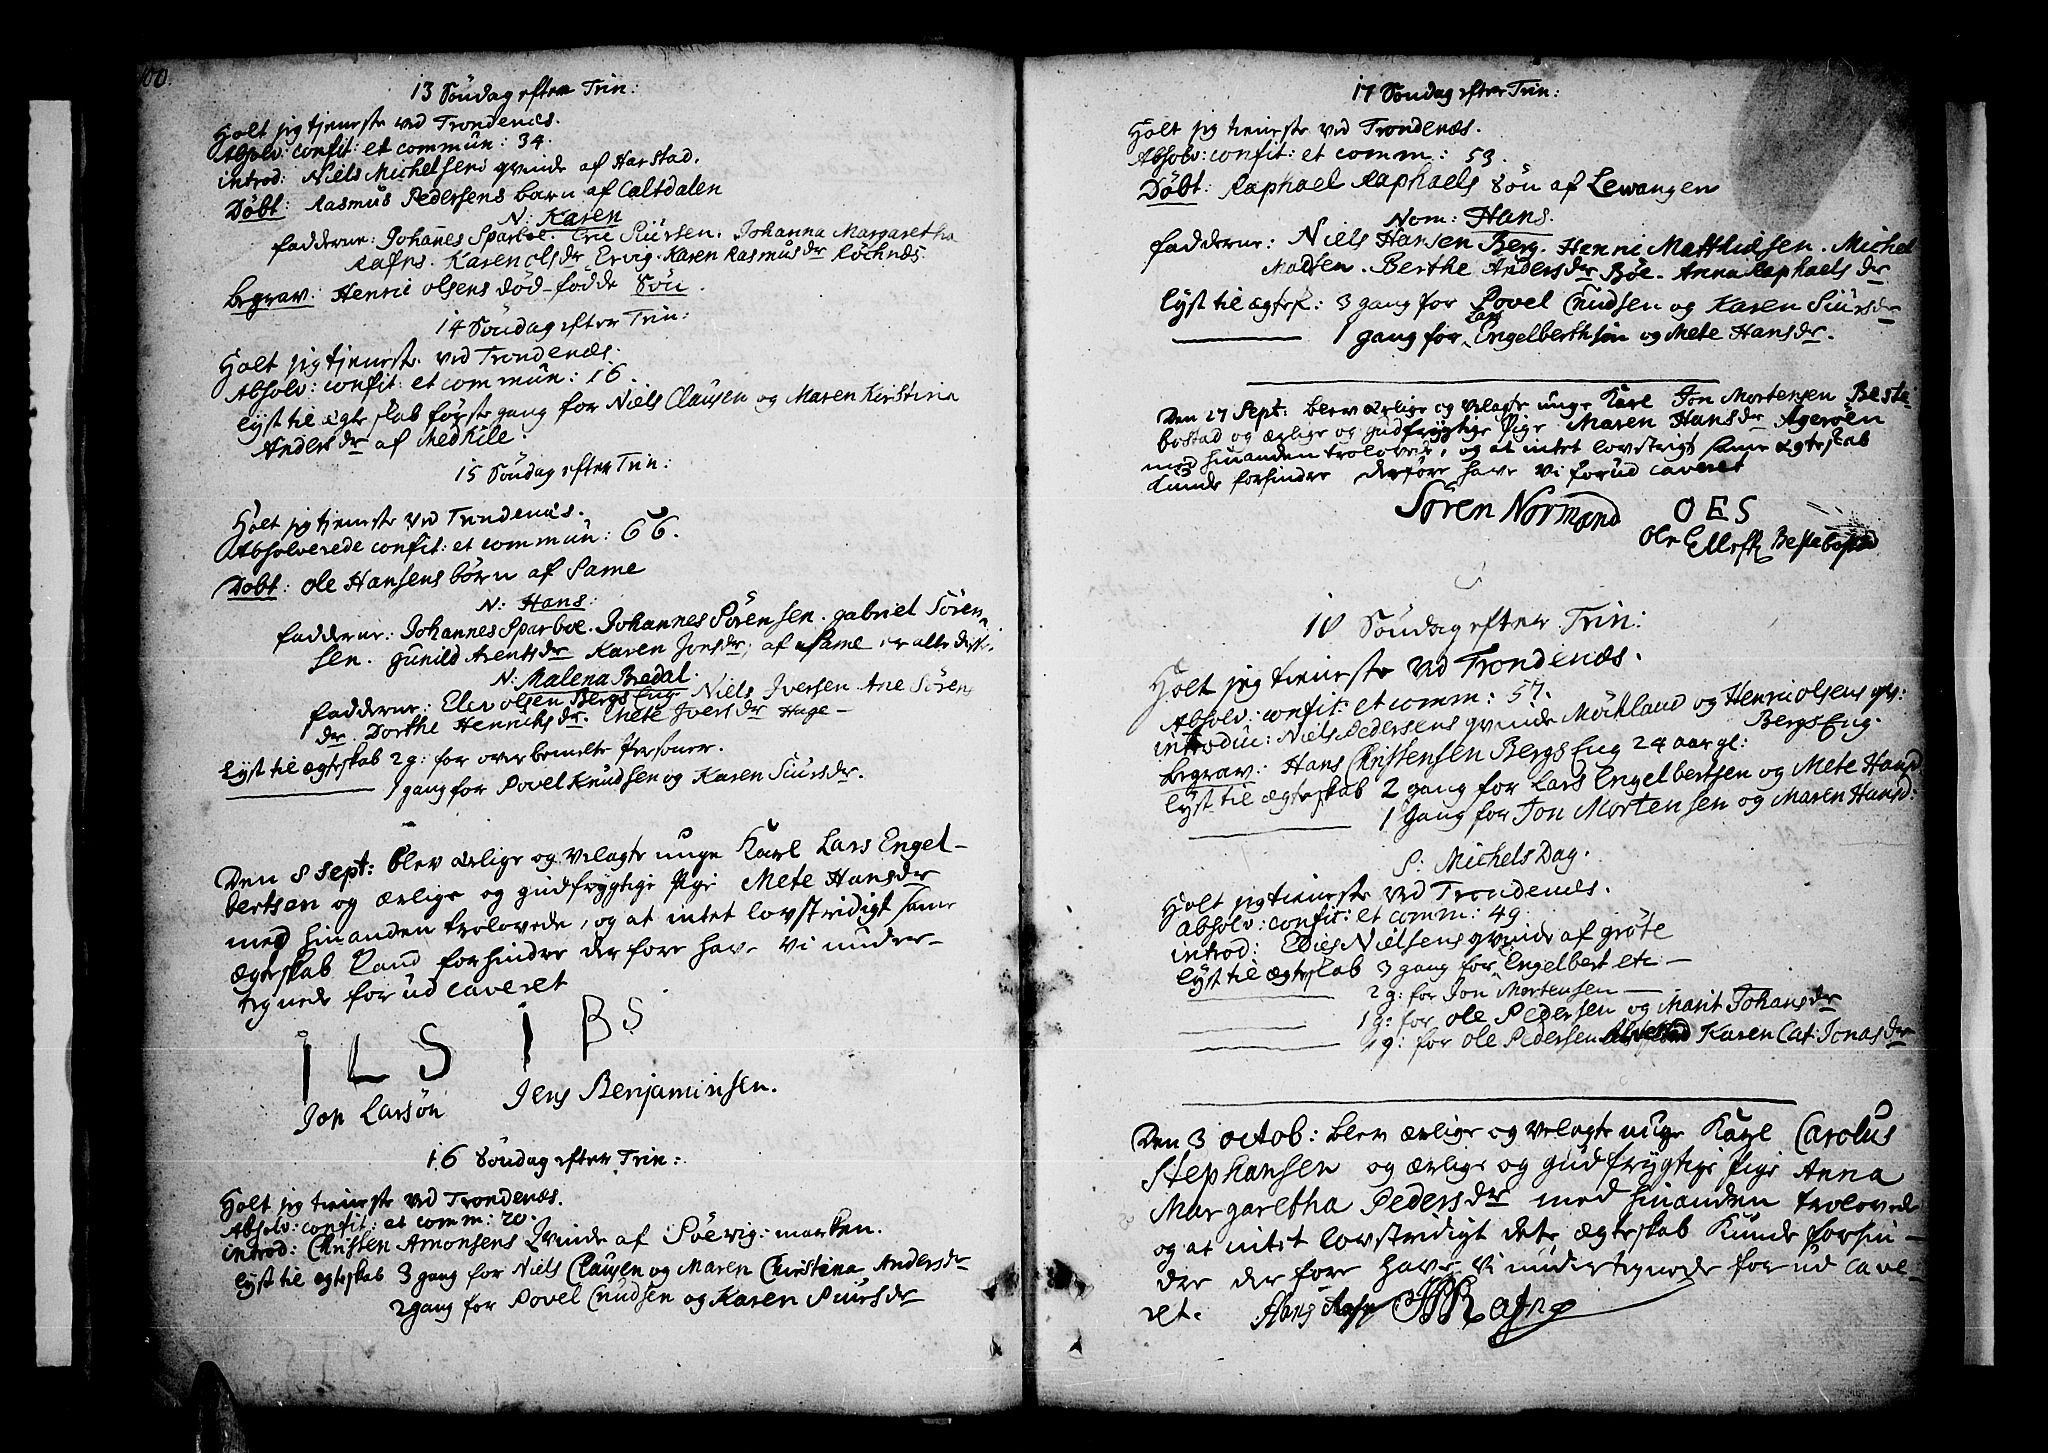 100.
13 Söndag efter Trin:
Holt jeg tjeneste ved Trondenæs.
Absolv: confit: et commun: 34.
introd: Niels Michelsens qvinde af Harstad.
Döbt: Rasmus Pedersens barn af Caltdalen
N: Karen
fadderne: Johanes Sparboe. Eric Siursen. Johanna Margaretha
Rafns. Karen olsdr Ervig. Karen Rasmusdr Röchnæs.
begrav: Henric olsens död-födde Sön.
14 Söndag efter Trin:
Holt jeg tjeneste ved Trondenæs.
Absolv: confit: et commun: 16.
lyst til ægteskab förste gang for Niels Clausen og Maren Kirstina
Andersdr af Medkile.
15 Söndag efter Trin:
Holt jeg tjeneste ved Trondenæs.
Absolverede confit: et commun: 66.
Döbt: ole Hansens börn af Same
N: Hans:
fadderne: Johannes Sparboe. Johannes Sörensen. gabriel Sören-
sen. gunild Arentsdr Karen Jonsdr, af Same er alle disse.
N: Malena Bredal.
fadderne: Elev olsen Bergs Eng Niels Iversen Ane Sörens
dr. Dorthe Henrichsdr. Mete Iversdr Hage -
lyst til ægteskab 2 g: for overbemelte Personer.
1 gang for Povel Knudsen og Karen Siursdr.
Den 8 Sept: blev ærlige og velagte unge Karl Lars Engel-
bertsen og ærlige og gudfrygtige Pige Mete Hansdr
med hinanden trolovede, og at intet lovstridigt samme
ægteskab kand forhindre derfore have vi under-
tegnede forud caveret
I L S I B S
Jon Larsön Jens Benjaminsen.
16 Söndag efter Trin:
Holt jeg tieneste ved Trondenæs.
Absolv: confit: et comm: 20.
introd: Christen Amonsens Qvinde af Söevig: marken.
lyst til ægteskab 3 gang for Niels Clausen og Maren Christina Andersdr
2 gang for Povel Cnudsen og Karen Siursdr
17 Söndag efter Trin:
Holt jeg tieneste ved Trondenæs.
Absolv: confit: et comm: 53.
Döbt: Raphael Raphaels Sön af Lewangen
Nom: Hans.
fadderne: Niels Hansen Berg. Henric Matthiæsen. Michel
Madsen. Berthe Andersdr Böe. Anna Raphaelsdr
lyst til ægtesk: 3 gang for Povel Cnudsen og Karen Siursdr
1 gang for Lars Engelberthsön og Mete Hansdr.
Den 17 Sept: blev ærlige og velagte unge Karl Jon Mortensen Beste-
bostad og ærlige og gudfrygtige Pige Maren Hansdr Ageröen
med hinanden trolovede, og at intet lovstridigt samme ægteskab
kunde forhindre derfore have vi forud caveret
Sören Normand O E S
Ole Ellefs Bestebostad
18 Söndag efter Trin:
Holt jeg tieneste ved Trondenæs.
Absolv: confit: et comm: 57.
introduc: Niels Pedersens qvinde Möchland og Henric olsens qv:
Bergs Eng.
begrav: Hans Christensen Bergs Eng 24 aar gl:
lyst til ægteskab 2 gang for Lars Engelbertsen og Mete Hansd
1 gang for Jon Mortensen og Maren Hansd:
S: Michels Dag.
Holt jeg tieneste ved Trondenæs.
absolv: confit: et comm: 49.
introd: Elies Nielsens qvinde af gröte
lyst til ægteskab 3 gang for Engelbert etc -
2 g: for Jon Mortensen -
1 g: for ole Pedersen og Marit Johansdr
1 g: for ole Pedersen Karen Cat: Jonasdr
Den 3 octob: blev ærlige og velagte unge Karl Carolus
Stephansen og ærlige og gudfrygtige Pige Anna
Margaretha Pedersdr med hinanden trolovede
og at intet lovstridigt dete ægteskab kunde forhin-
dre derfore have vi undertegnede forud cave-
ret. Hans Rafn Rafn